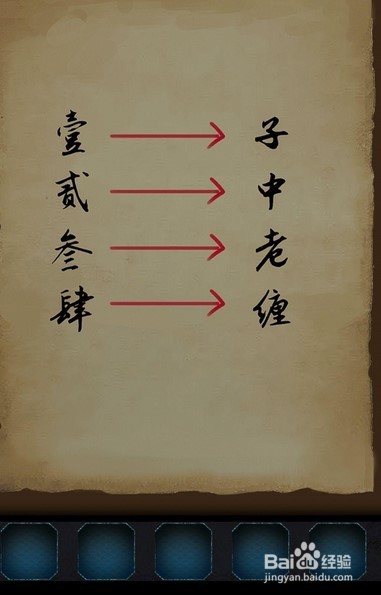 壹 子
贰 中
叁 老
肆 缠
Baidu经验
jingyan.baidu.com